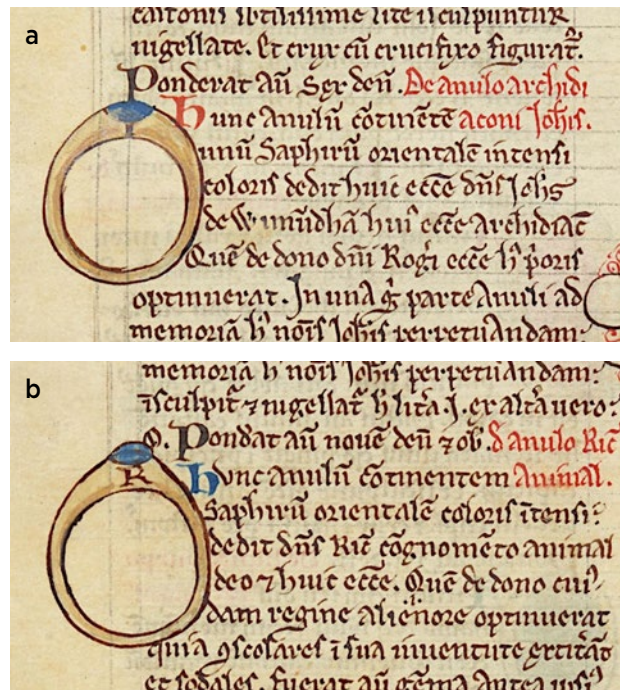 a
castonis subtilissime lite isculpuntur
nigellate. Et crux cū crucifixo figurat̄.
Ponderat aū Sex den̄. De anulo archidi
Hunc anulū cōtinētē aconi Joh̄is.
unū Saphirū orientalē intensi
coloris dedit huic ecc̄e dn̄s Joh̄s
de Wimūdhā hui' ecc̄e archidiac̄
Quē de dono dn̄i Roḡi ecc̄e h' p̄oris
optinuerat. In una g̊ parte anuli ad
memoriā h' nōis Joh̄is perpetuandam:
b
memoriā h' nōis Joh̄is perpetuandam:
īsculpit̄ ⁊ nigellat̄ h' lit̄a. J. ex altā uero:
O. Pond̄at aū nouē den̄ ⁊ ob'. d̄ anulo Ric̄
R
Hunc anulū cōtinentem animal.
Saphirū orientalē coloris ītensi:
dedit dn̄s Ric̄ cōgnomēto animal
deo ⁊ huic ecc̄e. Quē de dono cui'
dam regine alienore optinuerat
quia ꝯscolares ī sua iuuentute extit̄āt
et sodales. fuerat aū gēma antea